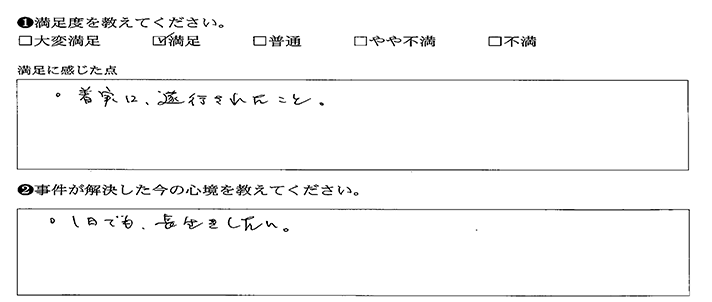 ❶満足度を教えてください。
□大変満足 ☑満足 □普通 □やや不満 □不満
満足に感じた点
。着実に、遂行されたこと。
❷事件が解決した今の心境を教えてください。
。1日でも、長生きしたい。